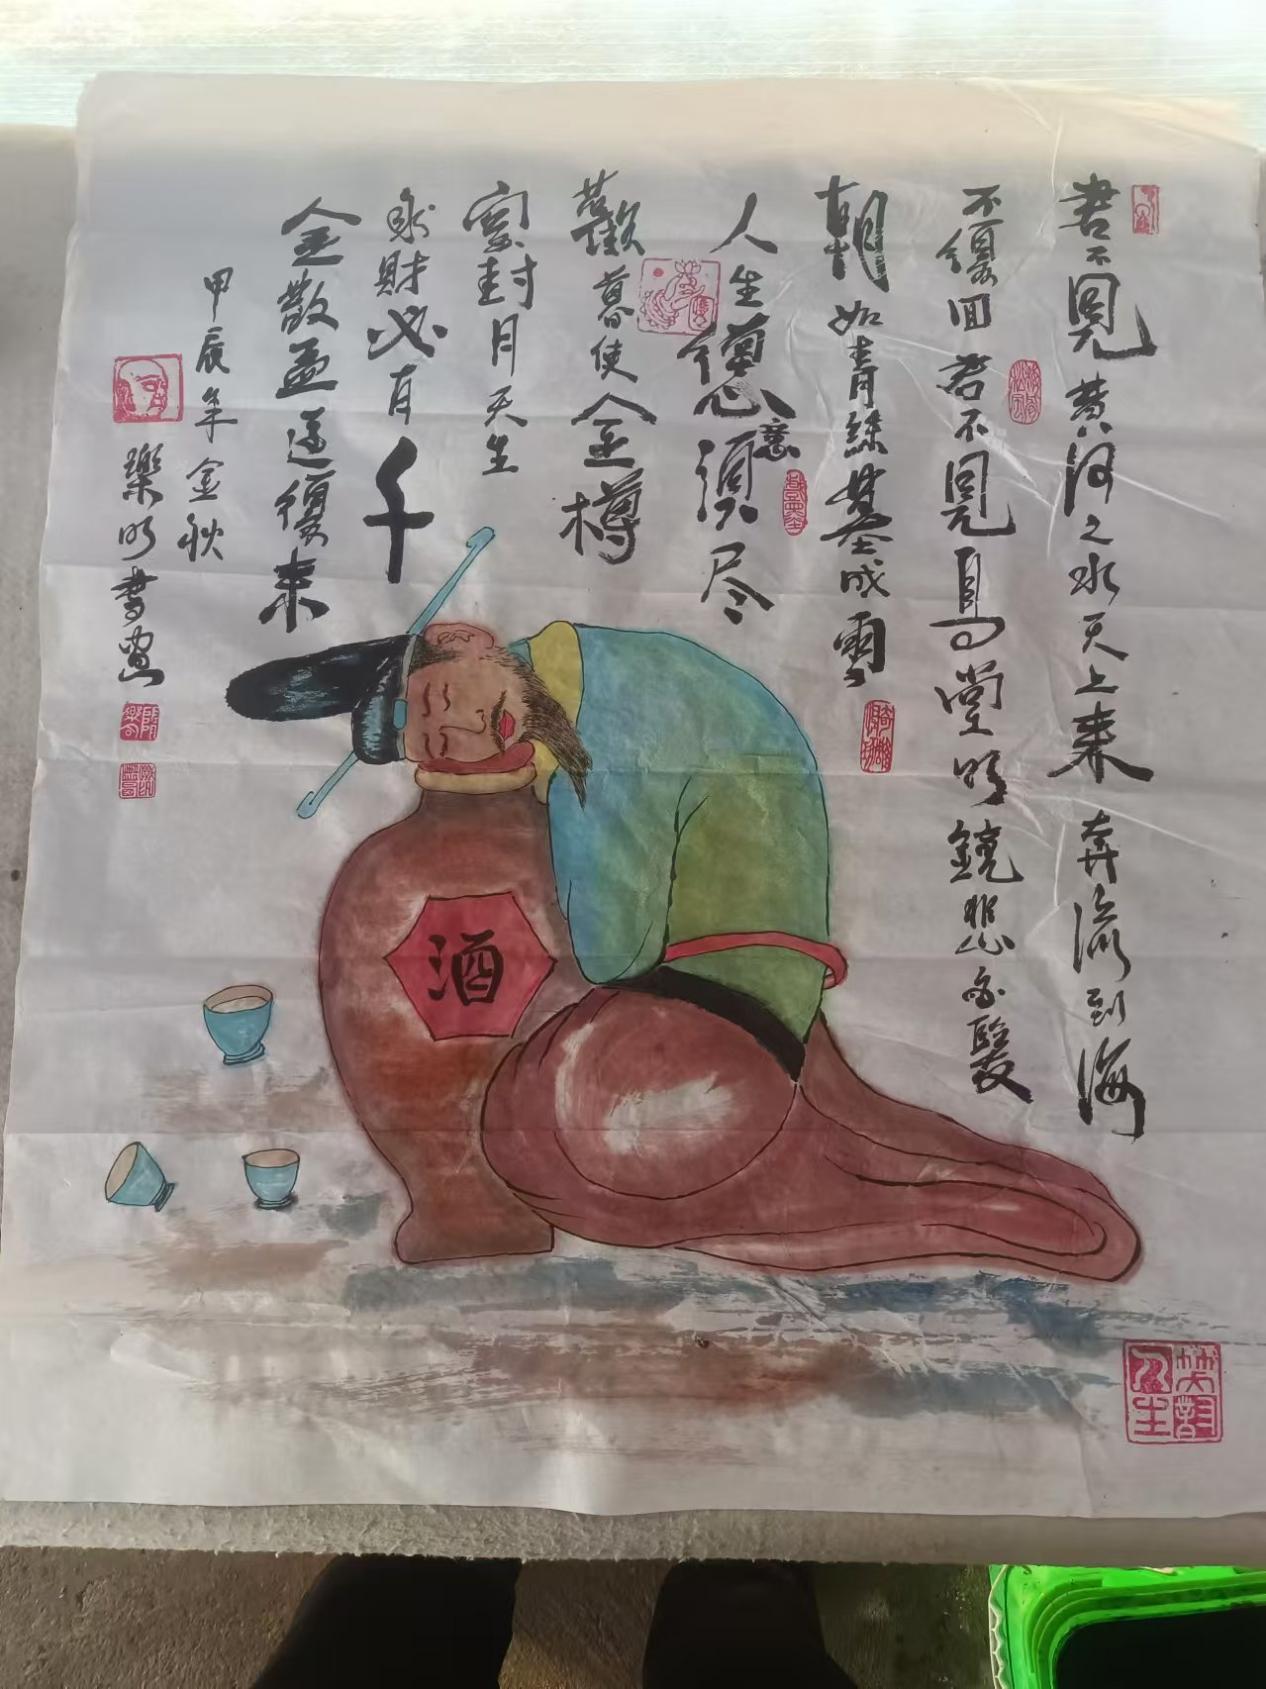 君不見黄河之水天上来奔流到海
不復回君不見高堂明鏡悲白髮
朝如青絲暮成雪
人生德意須尽
歡暮使金樽
空封月天生
我財必有千
金散盡還復来
甲辰年金秋
樂明書画
酒
人生